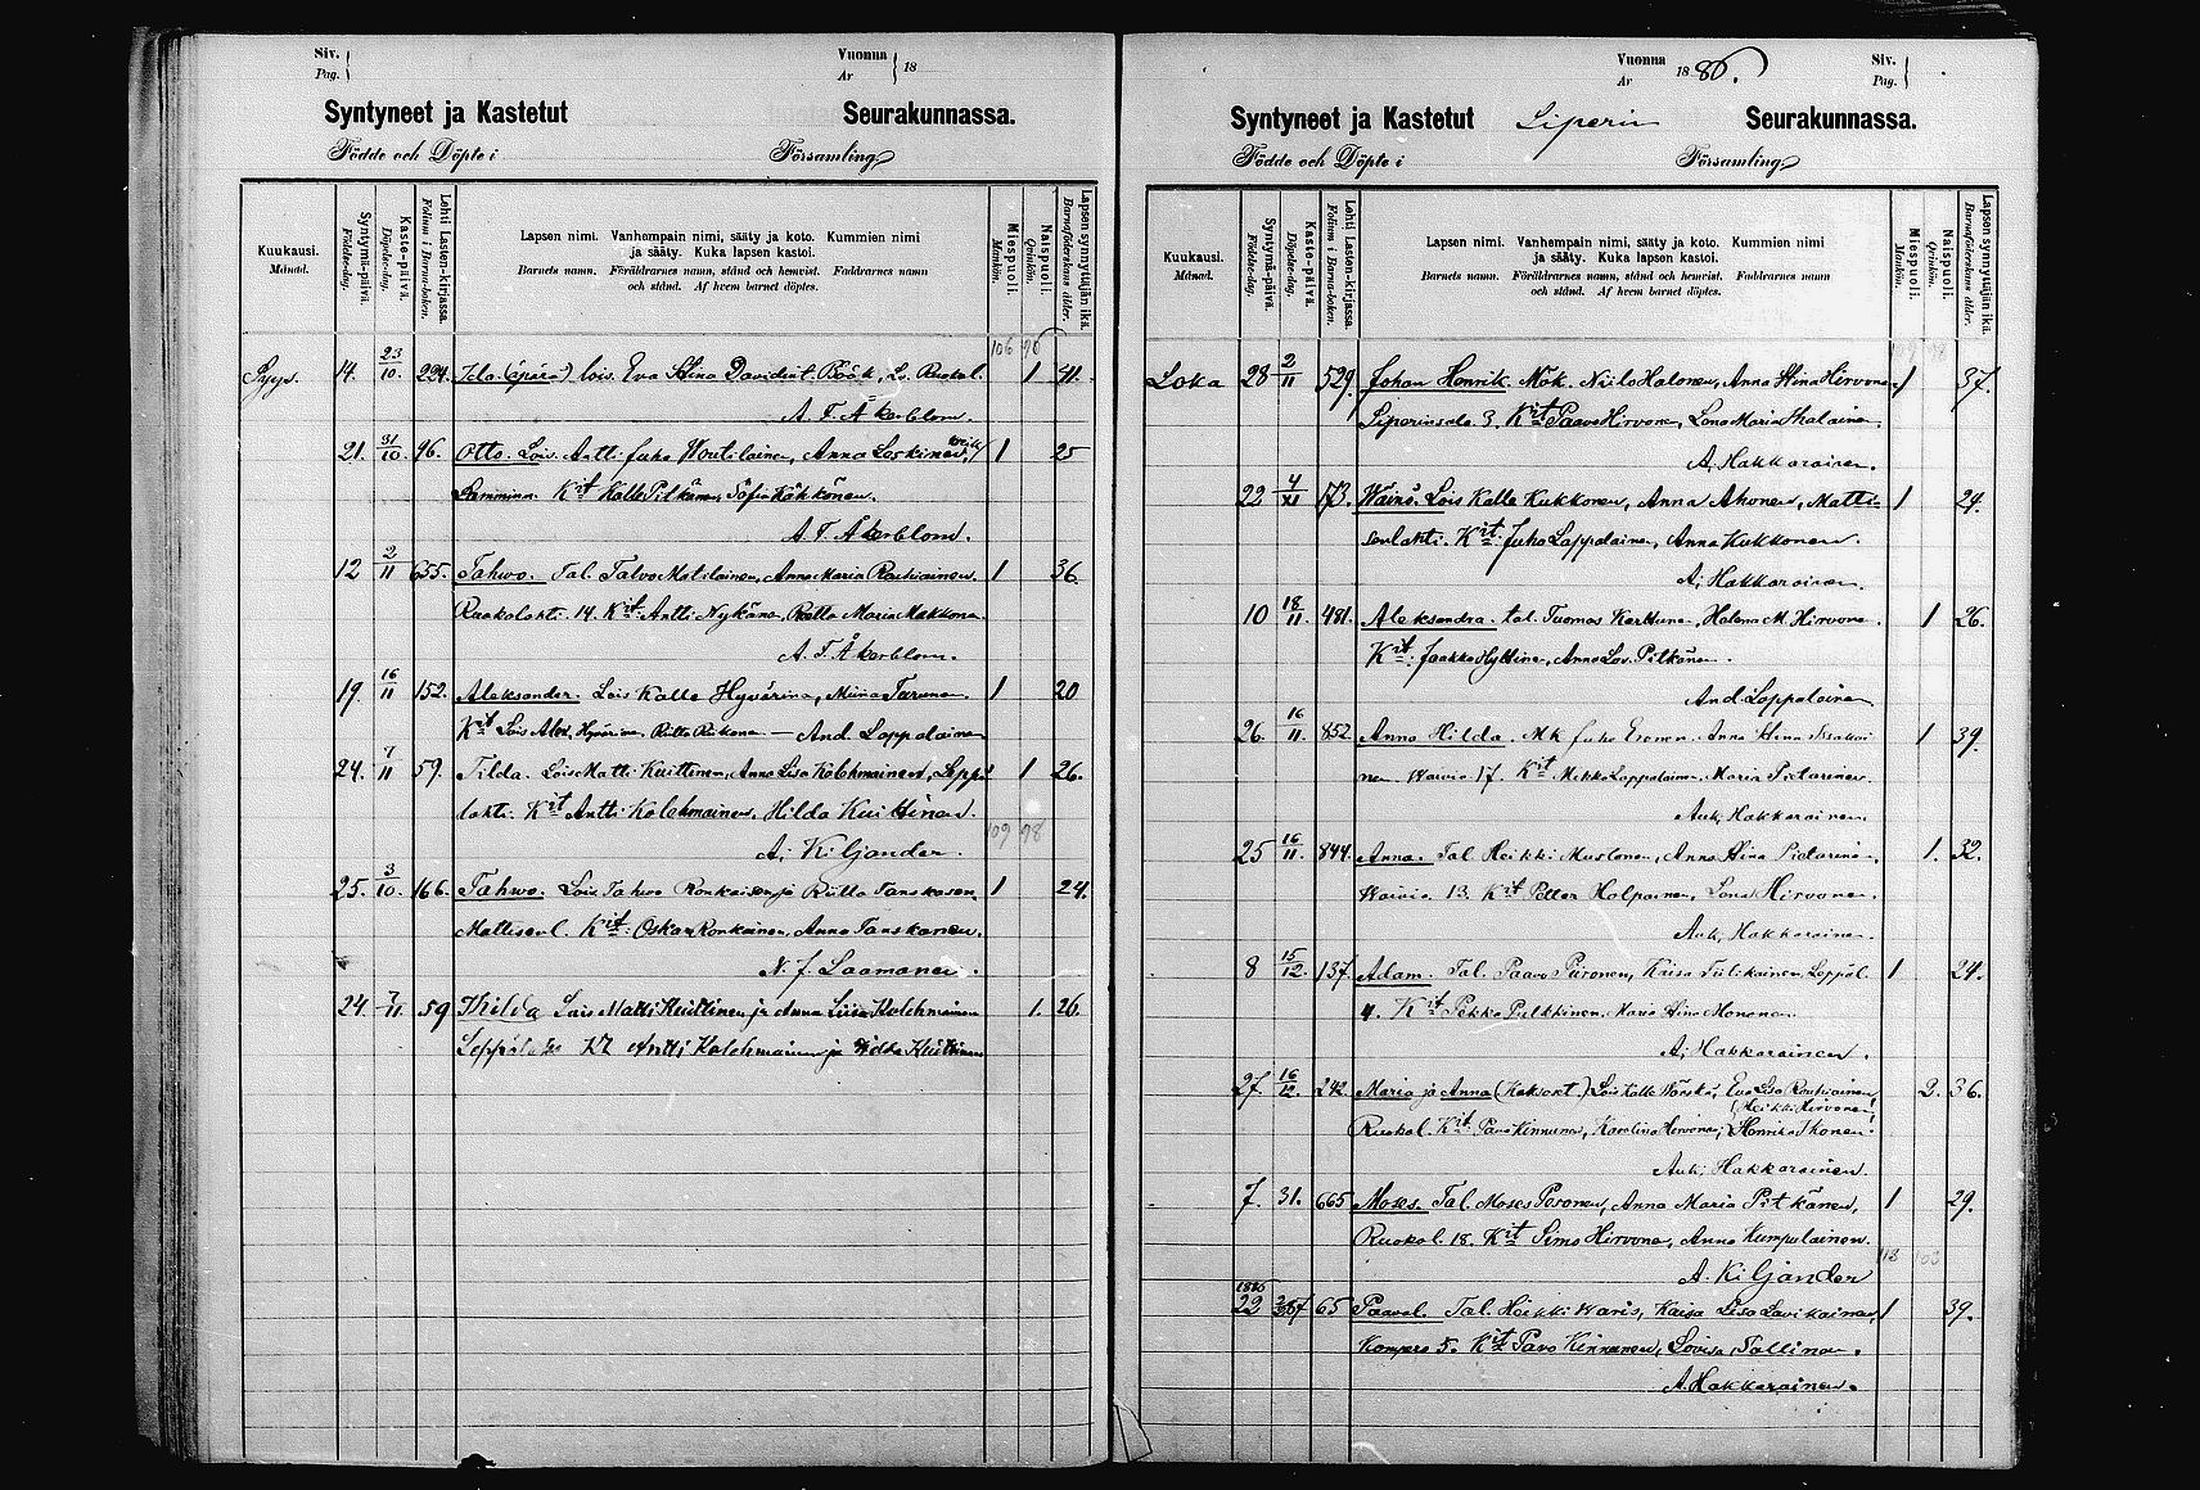 Siv.
Pag.
Vuonna
År
18
Syntyneet ja Kastetut Seurakunnassa.
Födde och Döpte i Församling
Kuukausi.
Månad.
Syntymä-päivä.
Födelse-dag.
Kaste-päivä.
Döpelse-dag.
Lehti Lasten-kirjassa.
Folium i Barna-boken.
Lapsen nimi. Vanhempain nimi, sääty ja koto. Kummien nimi
ja sääty. Kuka lapsen kastoi.
Barnets namn. Föräldrarnes namn, stånd och hemvist. Faddrarnes namn
och stånd. Af hvem barnet döptes.
Miespuoli.
Mankön.
Naispuoli.
Qvinkön.
Lapsen synnyttäjän ikä.
Barnaföderskans ålder.
106
Syys. 14. 23/10. 224. Ida (äpärä) lois. Eva Stina Davidint. Böök, Ls. Ruokol. 1 41.
A. F. Åkerblom.
21. 31/10. 96. Otto. Lois. Antti Juho Woutilainen, Anna Leskinen, 1 25
Lammina. Kit Kalle Pitkänen, Sofia Kähkönen.
A. F. Åkerblom.
12 2/11 655. Tahwo. Tal. Talvo Matilainen, Anna Maria Rautiainen. 1 36.
Ruokolahti. 14. Kit Antti Nykänen, Reetta Maria Makkonen.
A. F. Åkerblom.
19. 16/11 152. Aleksander. Lois Kalle Hyvärinen, Miina Tarunen. 1 20
Kit Lois Alex. Hyvärinen, Riitta Riikonen. — And. Lappalainen
24. 7/11 59. Tilda. Lois Matti Kuittinen, Anna Lisa Kolehmainen, Leppä 1 26.
lahti. Kit Antti Kolehmainen, Hilda Kuittinen.
109 98
A. Kiljander.
25. 3/10. 166. Tahwo. Lois Tahwo Ronkainen ja Riitta Tanskanen, 1 24.
Mattisenl. Kit: Oskar Ronkainen, Anna Tanskanen.
N. J. Laamanen.
24. 7/11. 59 Thilda Lois Matti Kuittinen ja Anna Liisa Kolehmainen 1. 26.
Leppälahti Kt Antti Kolehmainen ja Hilda Kuittinen
Vuonna
År
1886.
Siv.
Pag.
Syntyneet ja Kastetut Liperin Seurakunnassa.
Födde och Döpte i Församling
Kuukausi.
Månad.
Syntymä-päivä.
Födelse-dag.
Kaste-päivä.
Döpelse-dag.
Lehti Lasten-kirjassa.
Folium i Barna-boken.
Lapsen nimi. Vanhempain nimi, sääty ja koto. Kummien nimi
ja sääty. Kuka lapsen kastoi.
Barnets namn. Föräldrarnes namn, stånd och hemvist. Faddrarnes namn
och stånd. Af hvem barnet döptes.
Miespuoli.
Mankön.
Naispuoli.
Qvinkön.
Lapsen synnyttäjän ikä.
Barnaföderskans ålder.
Loka 28 2/11 529. Johan Henrik. Mök. Niilo Halonen, Anna Stina Hirvonen 1 37.
Liperinsalo. 3. Kit Paavo Hirvonen, Lena Maria Ikalainen.
A. Hakkarainen.
22 4/XI 173. Wäinö. Lois Kalle Kukkonen, Anna Ahonen, Matti- 1 24.
senlahti. Kit. Juho Lappalainen, Anna Kukkonen.
A. Hakkarainen.
10 18/11. 481. Aleksandra. tal. Tuomas Karttunen, Helena M. Hirvonen. 1 26.
Kit: Jaakko Hyttinen, Anna Lov. Pitkänen.
And. Lappalainen
26. 16/11. 852. Anna Hilda. Mk Juho Eronen. Anna Stina Issakai 1 39.
nen. Waivio 17. Kit Mikko Lappalainen, Maria Pietarinen.
Auk. Hakkarainen.
25 16/11. 844. Anna. Tal. Heikki Mustonen, Anna Stina Pietarinen, 1. 32.
Waivio. 13. Kit Petter Holpainen, Lena Hirvonen.
Auk. Hakkarainen.
8 15/12. 137. Adam. Tal. Paavo Piironen, Kaisa Tiilikainen, Leppäl. 1 24.
4. Kit Pekka Pulkkinen, Maria Stina Mononen.
A. Hakkarainen.
27. 16/12. 242. Maria ja Anna (Kaksoset.) Lois Kalle Wänskä, Eva Lisa Rautiainen 2. 36.
(Heikki Hirvonen)
Ruokol. Kit. Pavo Kinnunen, Karolina Hirvonen, Henrika Ikonen.
Auk. Hakkarainen.
7. 31. 665 Moses. Tal. Moses Pesonen, Anna Maria Pitkänen, 1 29.
Ruokol. 18. Kit Simo Hirvonen, Anna Kumpulainen.
113 103
A. Kiljander
1886
22 65 Paaval. Tal. Heikki Waris, Kaisa Lisa Lavikainen, 1 39.
Kompero 5. Kit Pavo Kinnunen, Lovisa Tallinen.
A. Hakkarainen.